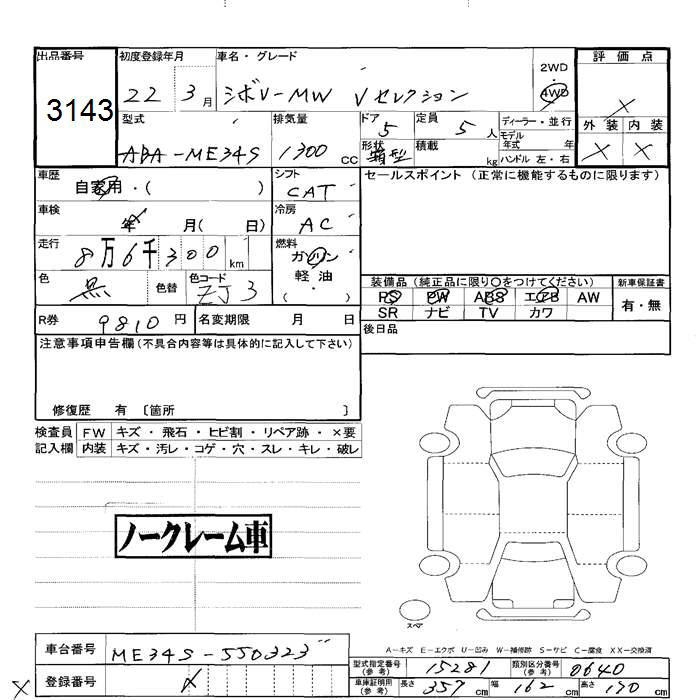 出品番号 初度登録年月 車名・グレード 2WD 評価点
3143 22 3月 シボレーMW Vセレクション 4WD ×
型式 排気量 ドア 定員 ディーラー・並行 外装 内装
ABA-ME34S 1300cc 5 5人 モデル年式 年 × ×
形状 箱型 積載 kg ハンドル 左・右
車歴 自家用・( ) シフト CAT セールスポイント (正常に機能するものに限ります)
車検 年 月( 日) 冷房 AC
走行 8万6千300km 燃料 ガソリン
軽・油
( ・ )
色 黒 色替 色コード ZJ3 装備品 (純正品に限り○をつけてください) 新車保証書
PS PW ABS エアB AW 有・無
SR ナビ TV カワ
R券 9810円 名変期限 月 日 後日品
注意事項申告欄(不具合内容等は具体的に記入して下さい)
修復歴 有 〔箇所 〕
検査員 FW キズ・飛石・ヒビ割・リペア跡・×要
記入欄 内装 キズ・汚レ・コゲ・穴・スレ・キレ・破レ
ノークレーム車
スペア
A-キズ E-エクボ U-凹み W-補修跡 S-サビ C-腐食 XX-交換済
車台番号 ME34S-550323
型式指定番号(参考) 15281 類別区分番号(参考) 0640
× 登録番号
車庫証明用(参考) 長さ 357cm 幅 162cm 高さ 170cm